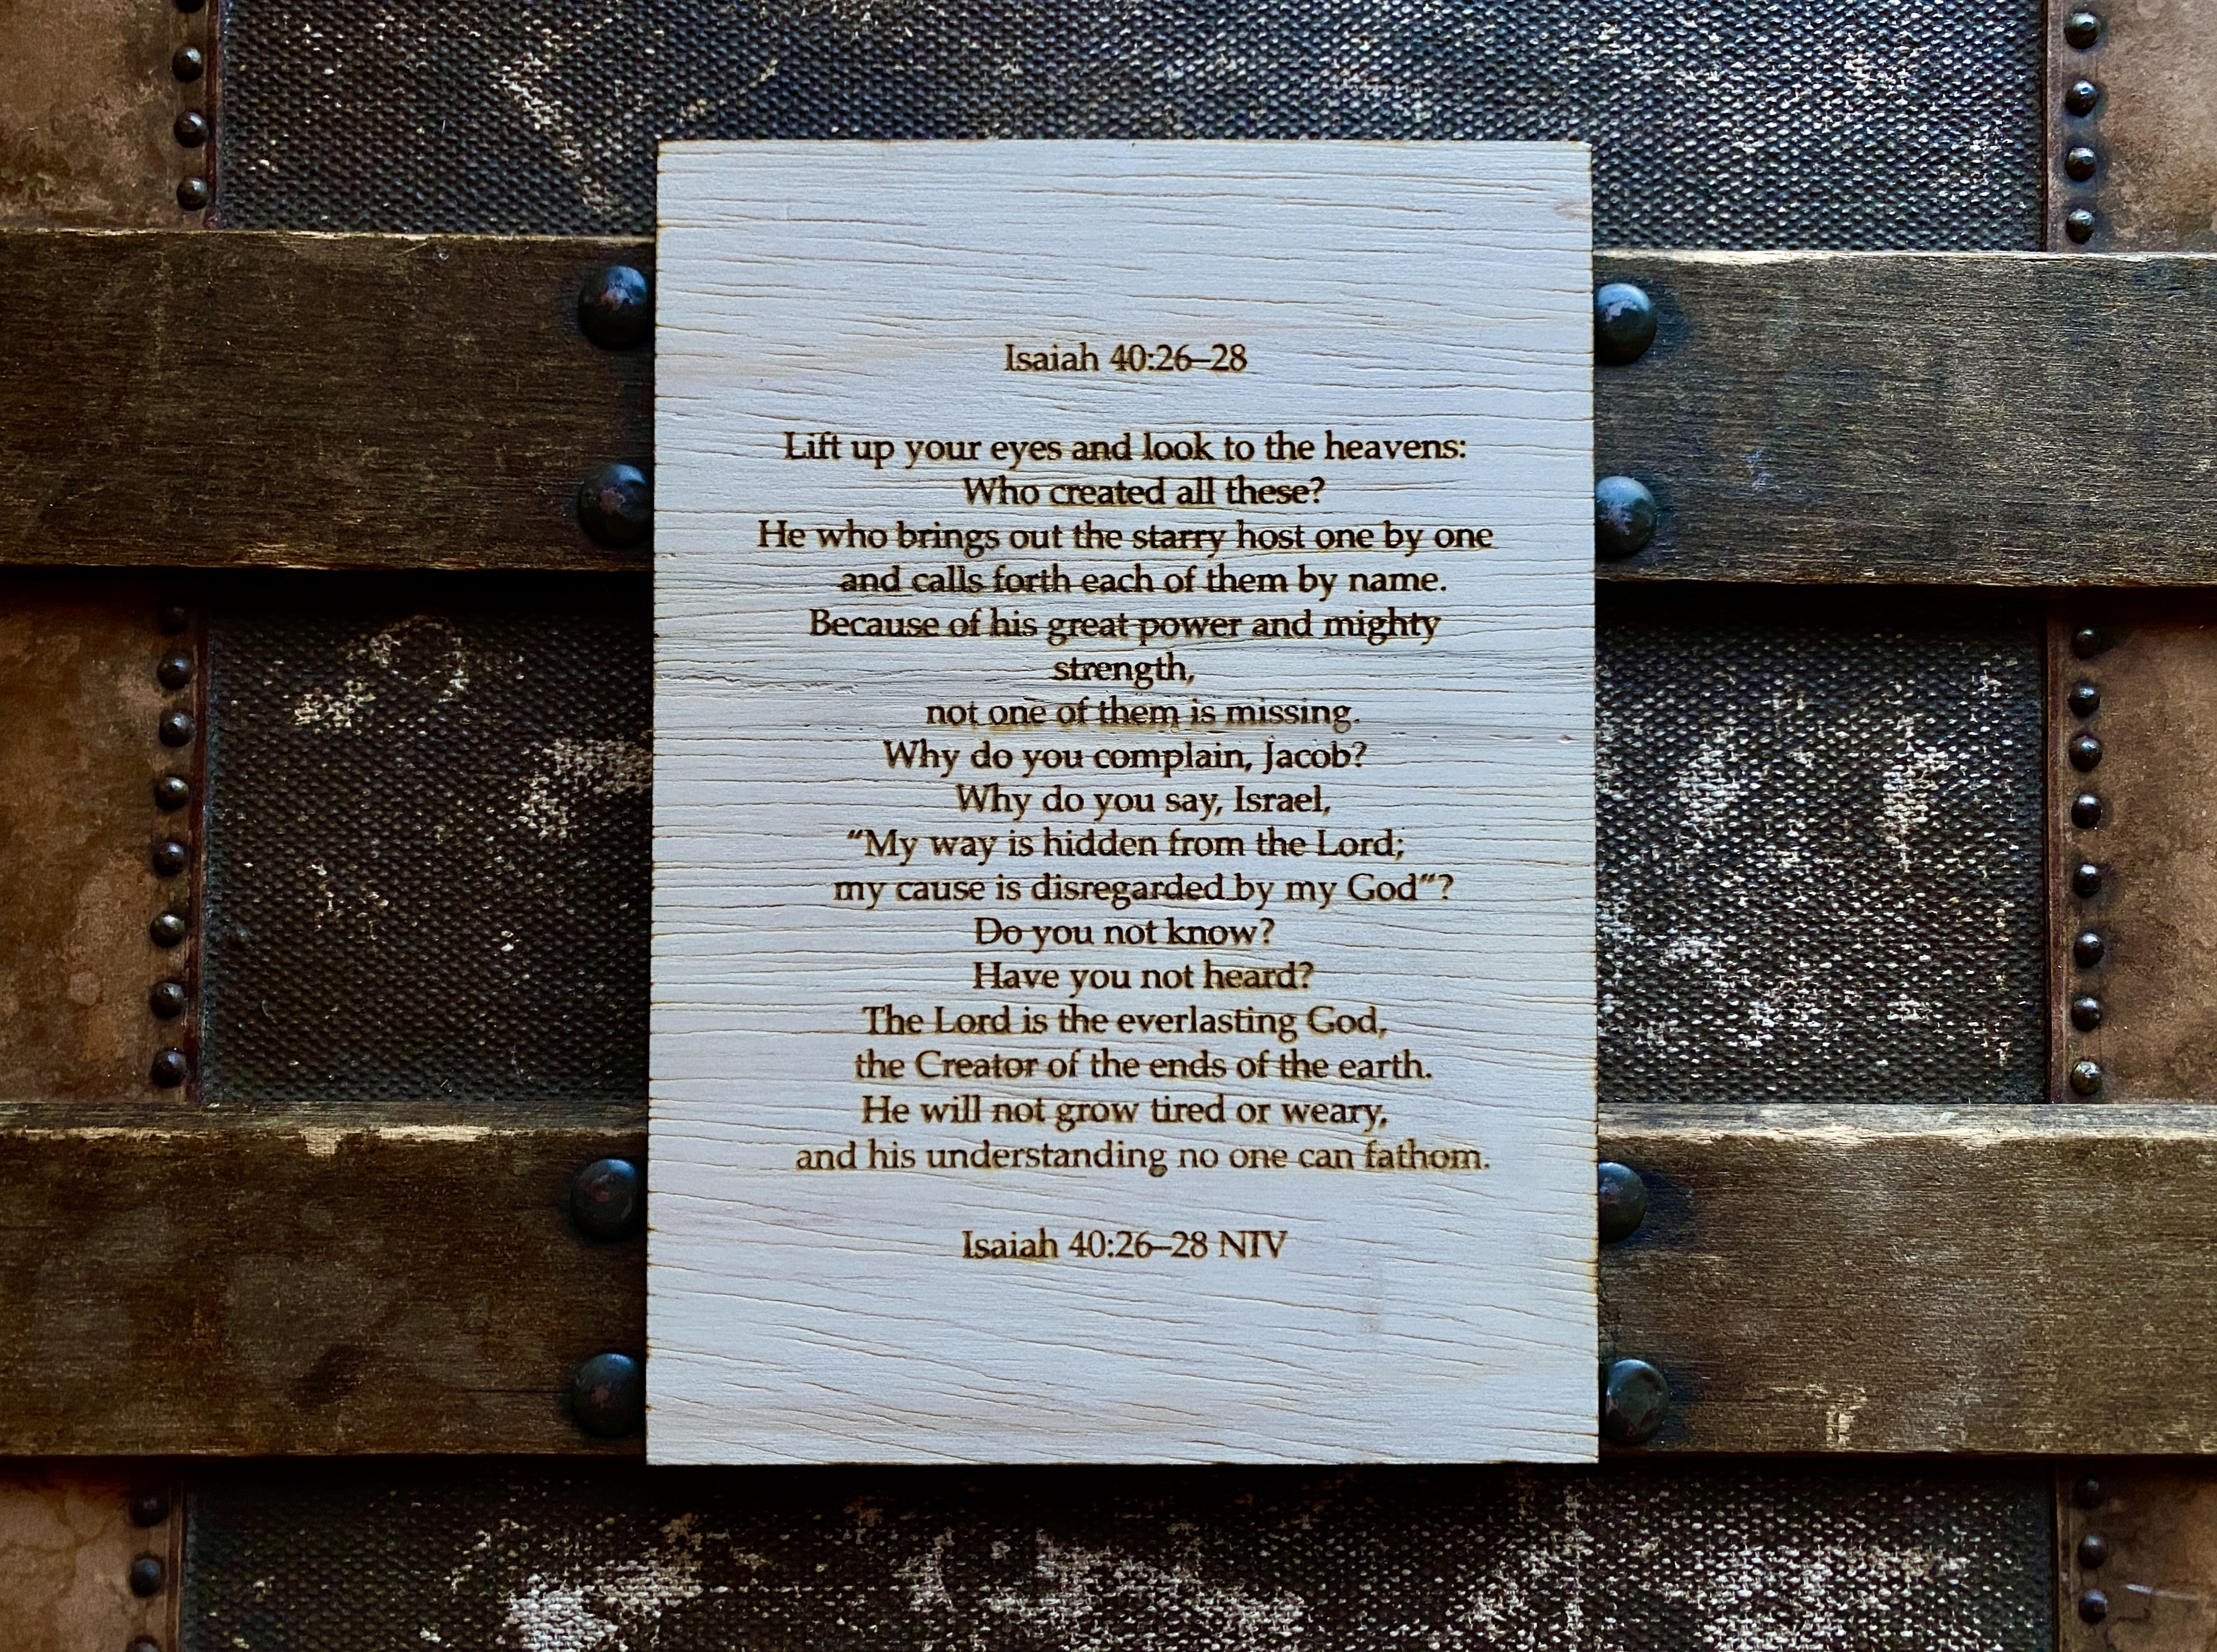 Isaiah 40:26–28
Lift up your eyes and look to the heavens:
Who created all these?
He who brings out the starry host one by one
and calls forth each of them by name.
Because of his great power and mighty
strength,
not one of them is missing.
Why do you complain, Jacob?
Why do you say, Israel,
“My way is hidden from the Lord;
my cause is disregarded by my God”?
Do you not know?
Have you not heard?
The Lord is the everlasting God,
the Creator of the ends of the earth.
He will not grow tired or weary,
and his understanding no one can fathom.
Isaiah 40:26–28 NIV